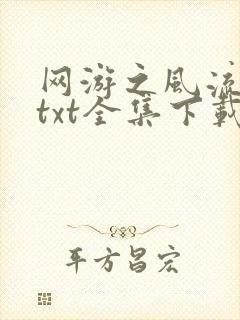 网游之风流
txt全集下载
平方昌宏